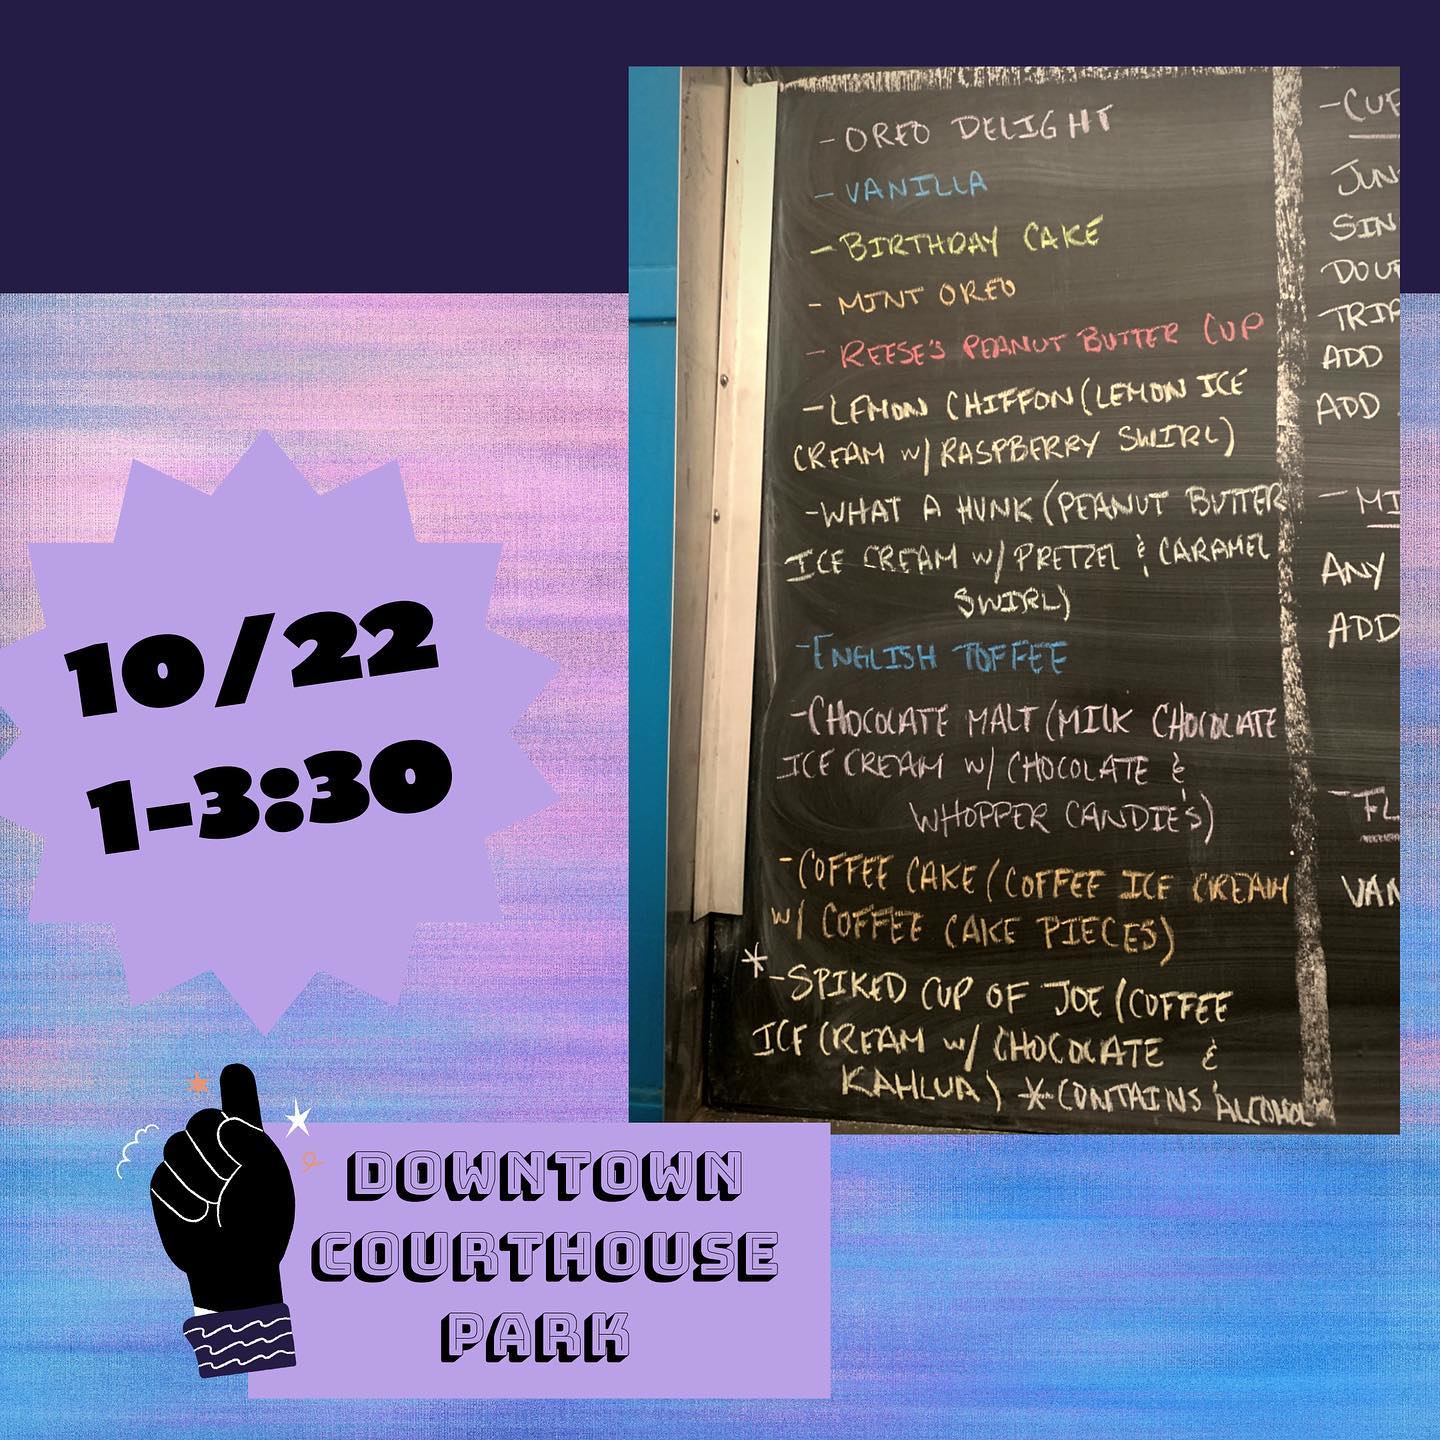 - OREO DELIGHT
- VANILLA
- BIRTHDAY CAKE
- MINT OREO
- REESE'S PEANUT BUTTER CUP
- LEMON CHIFFON (LEMON ICE
CREAM W/ RASPBERRY SWIRL)
- WHAT A HUNK (PEANUT BUTTER
ICE CREAM W/ PRETZEL & CARAMEL
SWIRL)
- ENGLISH TOFFEE
- CHOCOLATE MALT (MILK CHOCOLATE
ICE CREAM W/ CHOCOLATE &
WHOPPER CANDIES)
- COFFEE CAKE (COFFEE ICE CREAM
W/ COFFEE CAKE PIECES)
* - SPIKED CUP OF JOE (COFFEE
ICE CREAM W/ CHOCOLATE &
KAHLUA) * CONTAINS ALCOHOL
- CUP
JUN
SIN
DOU
TRIP
ADD
ADD
- MI
ANY
ADD
- FL
VAN
10/22
1-3:30
DOWNTOWN
COURTHOUSE
PARK